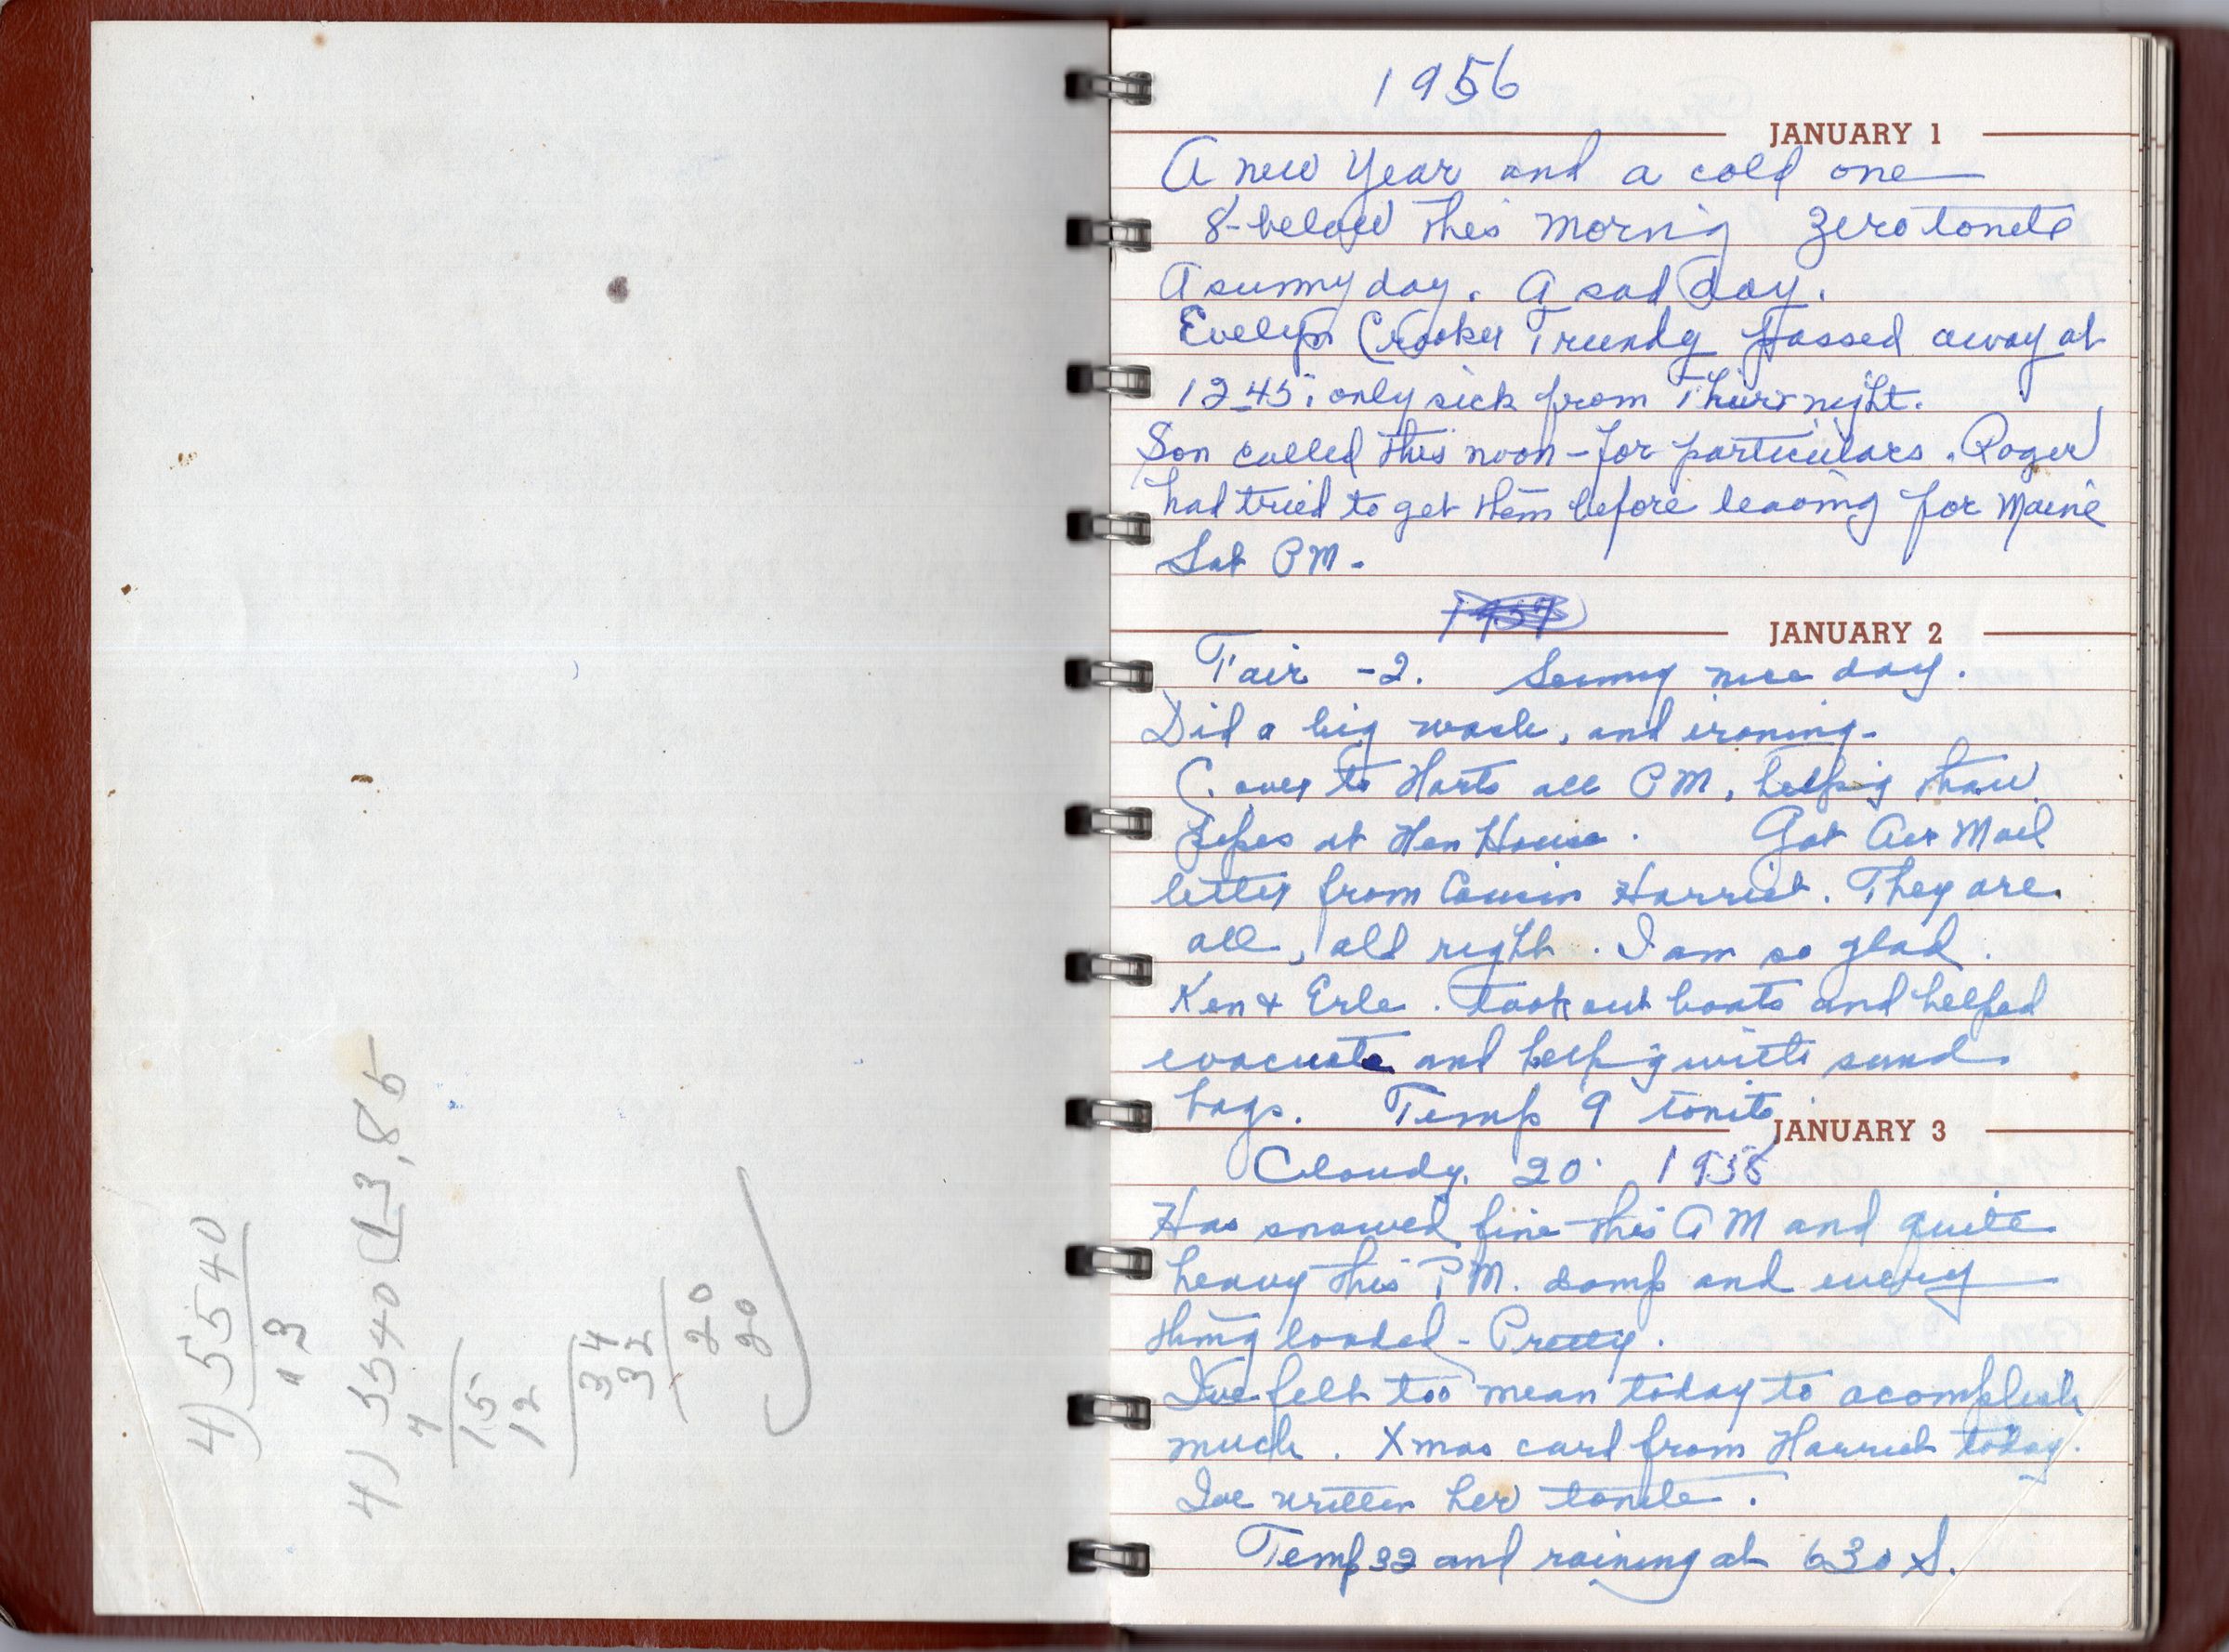 4)5540
13
4)5540(13,85
4
15
12
34
32
20
20
1956
JANUARY 1
A new Year and a cold one
8-below this mornig Zero tonite
A sunny day. A sad day.
Evelyn Crocker Trundy passed away at
12_45; only sick from Thurs night.
Son called this noon - for particulars. Roger
had tried to get them before leaving for Maine
Sat PM -
1957
JANUARY 2
Fair -2. Sunny nice day.
Did a big wash, and ironing -
C. over to Harts all PM, helpig thaw
pipes at Hen House. Got Air Mail
letter from Cousin Harriet. They are
all, all right. I am so glad.
Ken & Erle. took out boats and helped
evacuate and helpig with sand
bags. Temp 9 tonite
JANUARY 3
Cloudy. 20 1956
Has snowed fine this AM and quite
heavy this PM. damp and every
thing loaded - Pretty.
I've felt too mean today to acomplish
much. Xmas card from Harriet today.
Ive written her tonite.
Temp 32 and raining at 630 S.